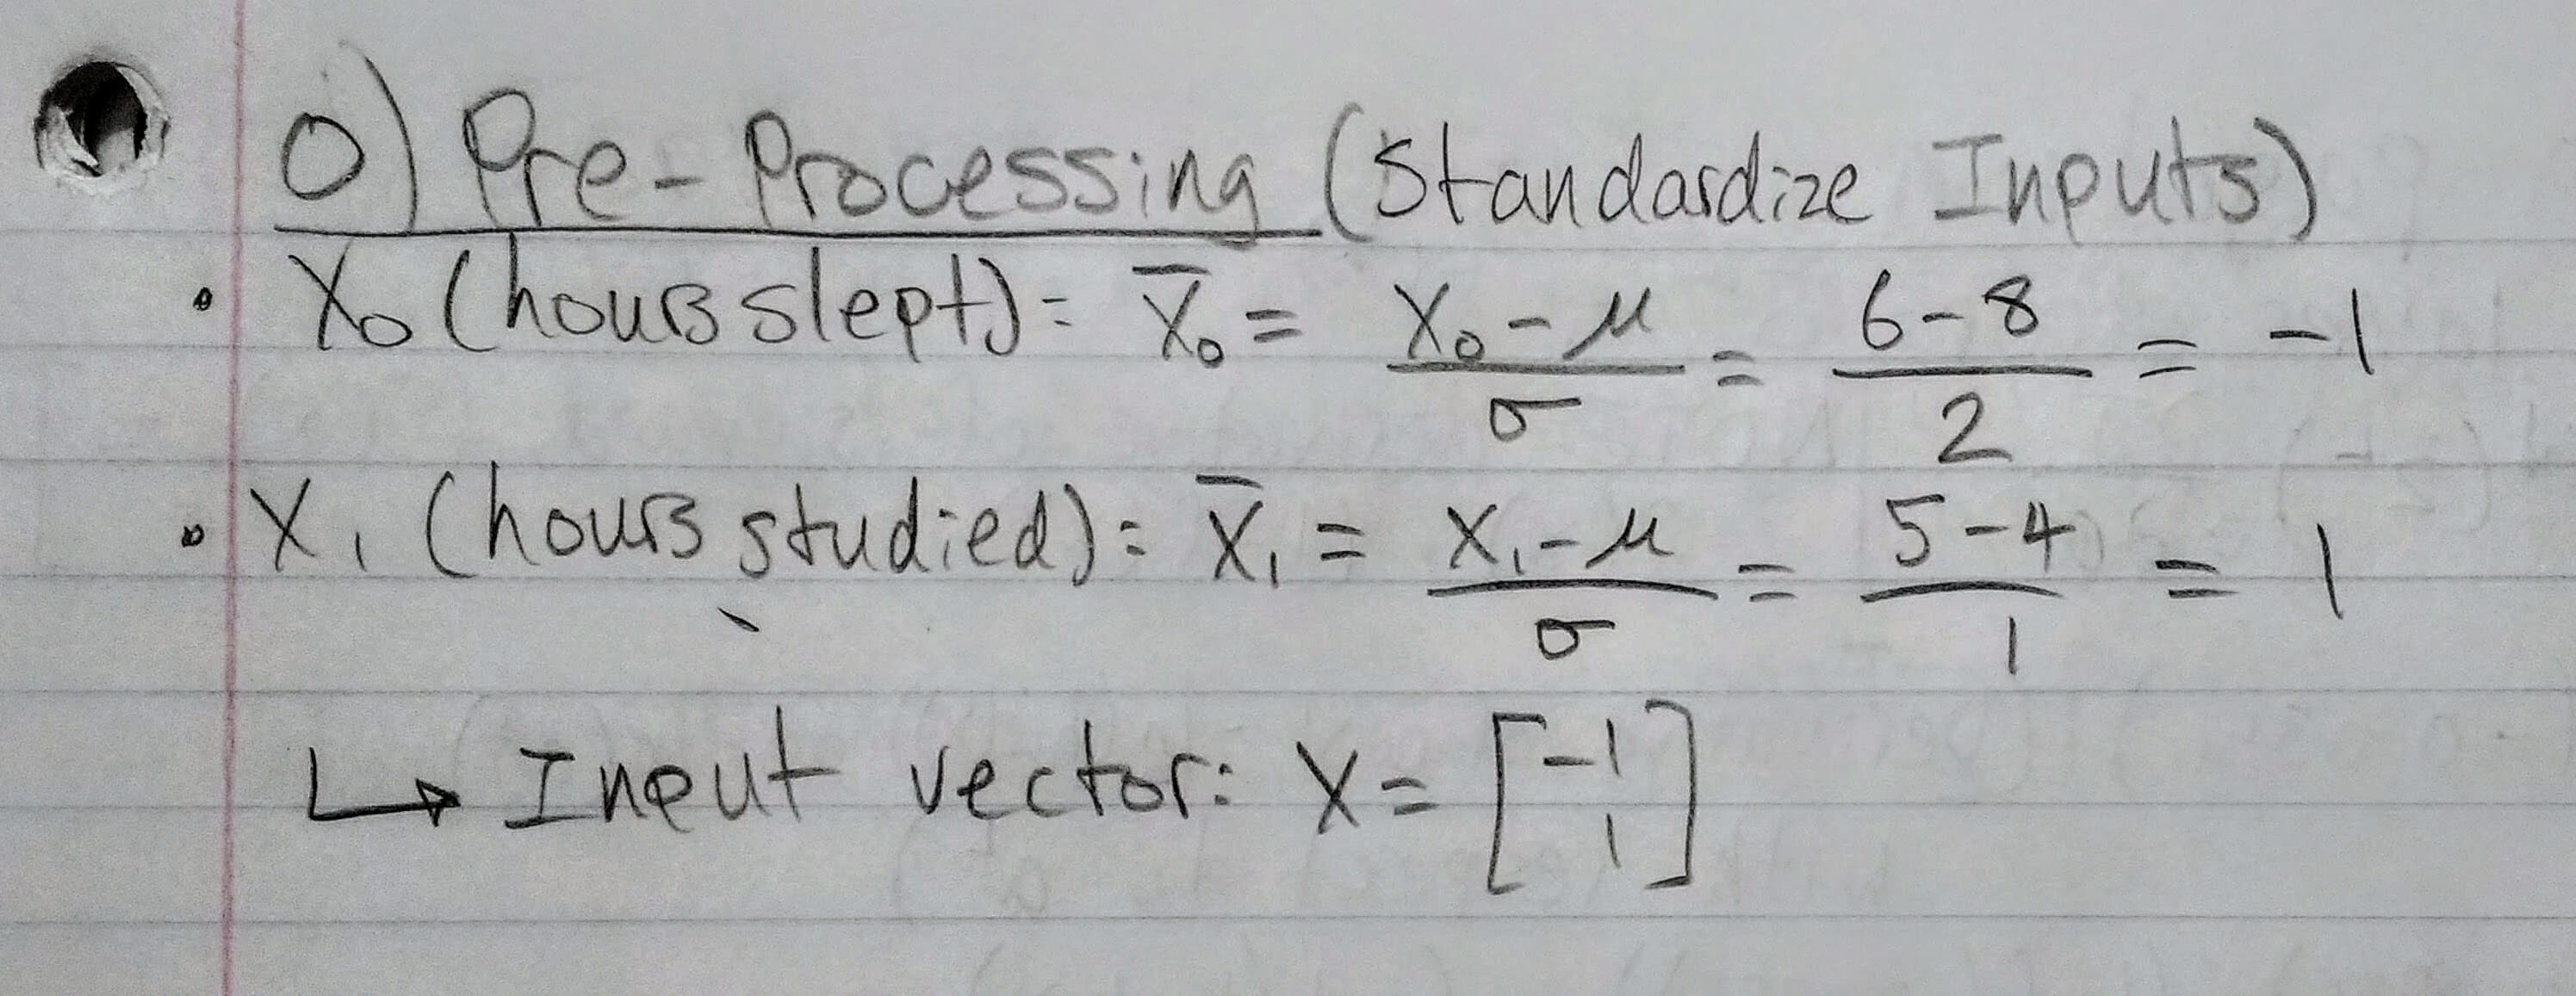 0) Pre-Processing (Standardize Inputs)
• X₀ (hours slept): X̄₀ = (X₀ - μ)/σ = (6 - 8)/2 = -1
• X₁ (hours studied): X̄₁ = (X₁ - μ)/σ = (5 - 4)/1 = 1
↳ Input vector: X = [-1
1]